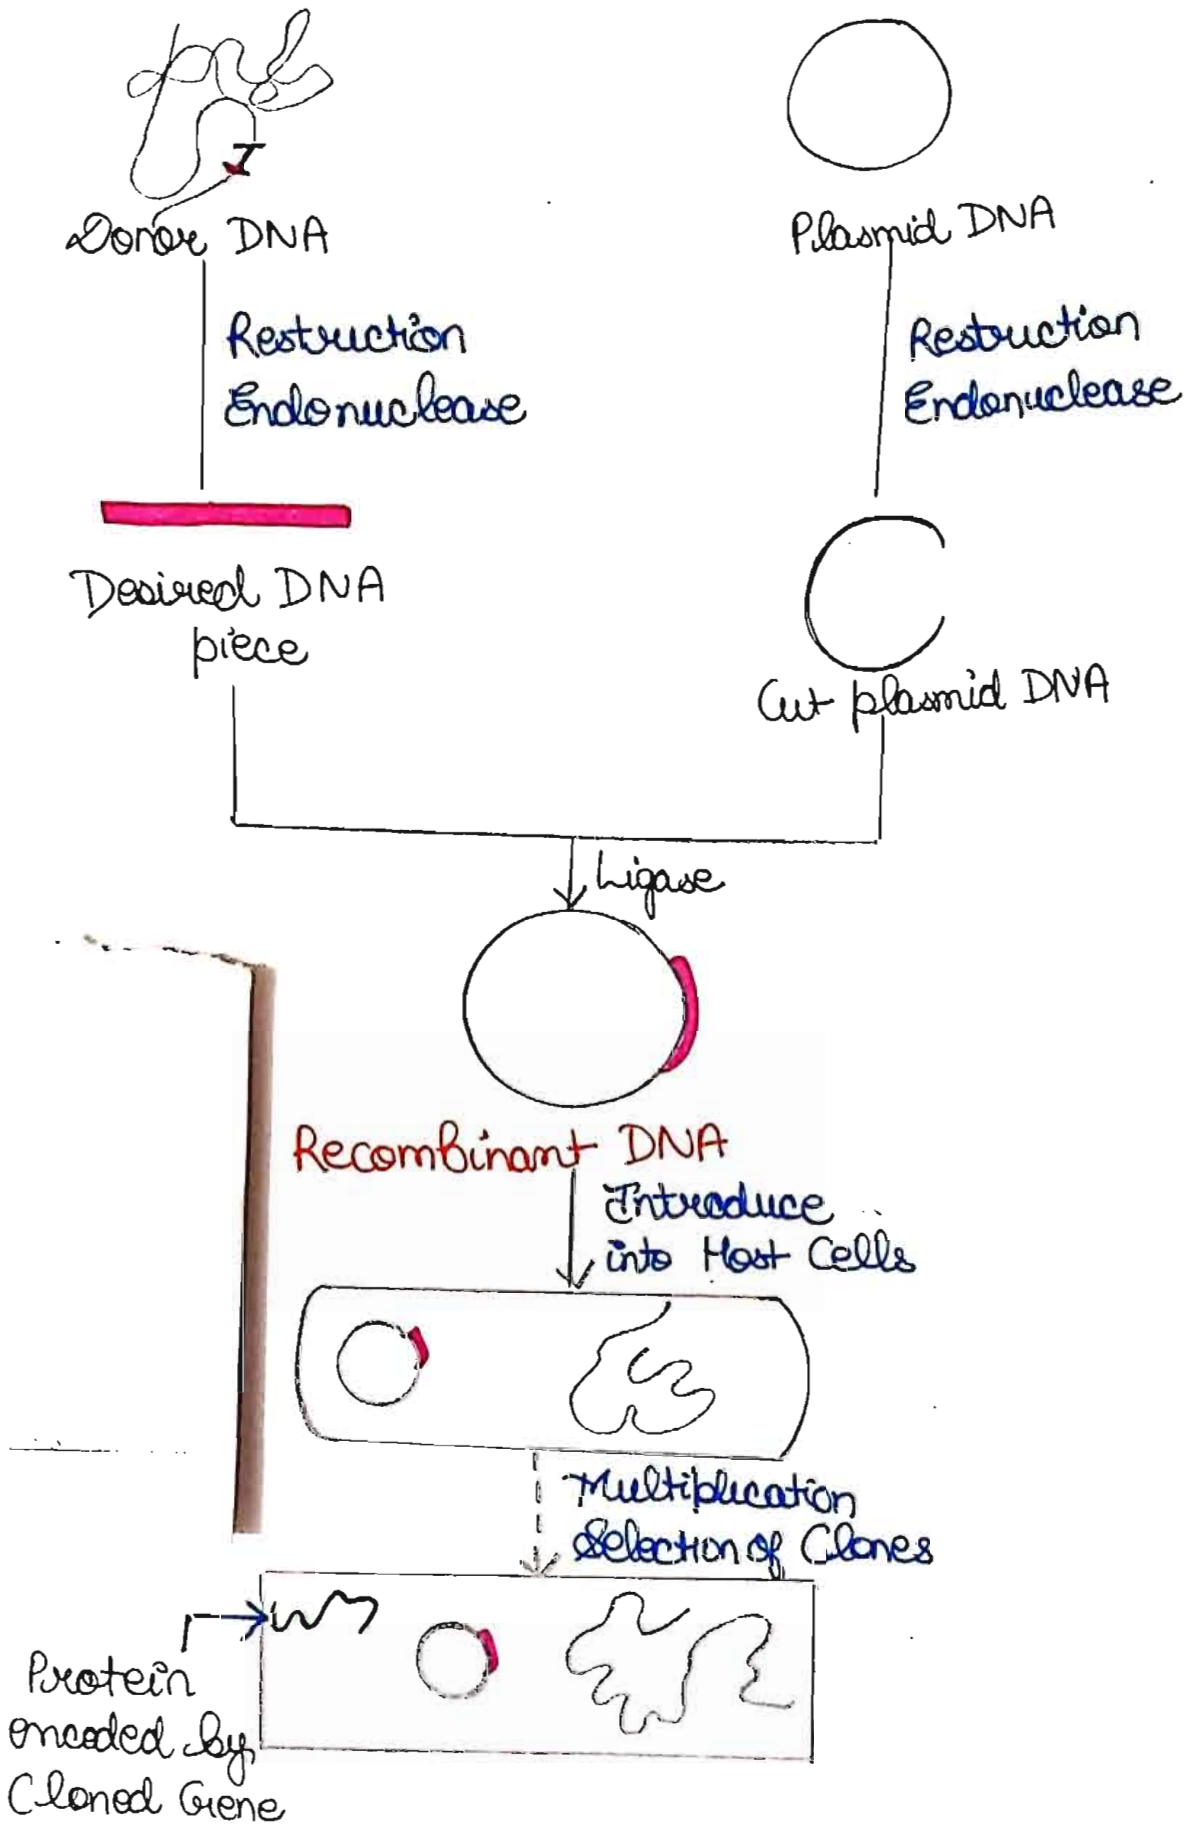 Donor DNA
Plasmid DNA
Restruction
Endonuclease
Restruction
Endonuclease
Desired DNA
piece
Cut plasmid DNA
Ligase
Recombinant DNA
Introduce
into Host Cells
Multiplication
Selection of Clones
Protein
encoded by
Cloned Gene